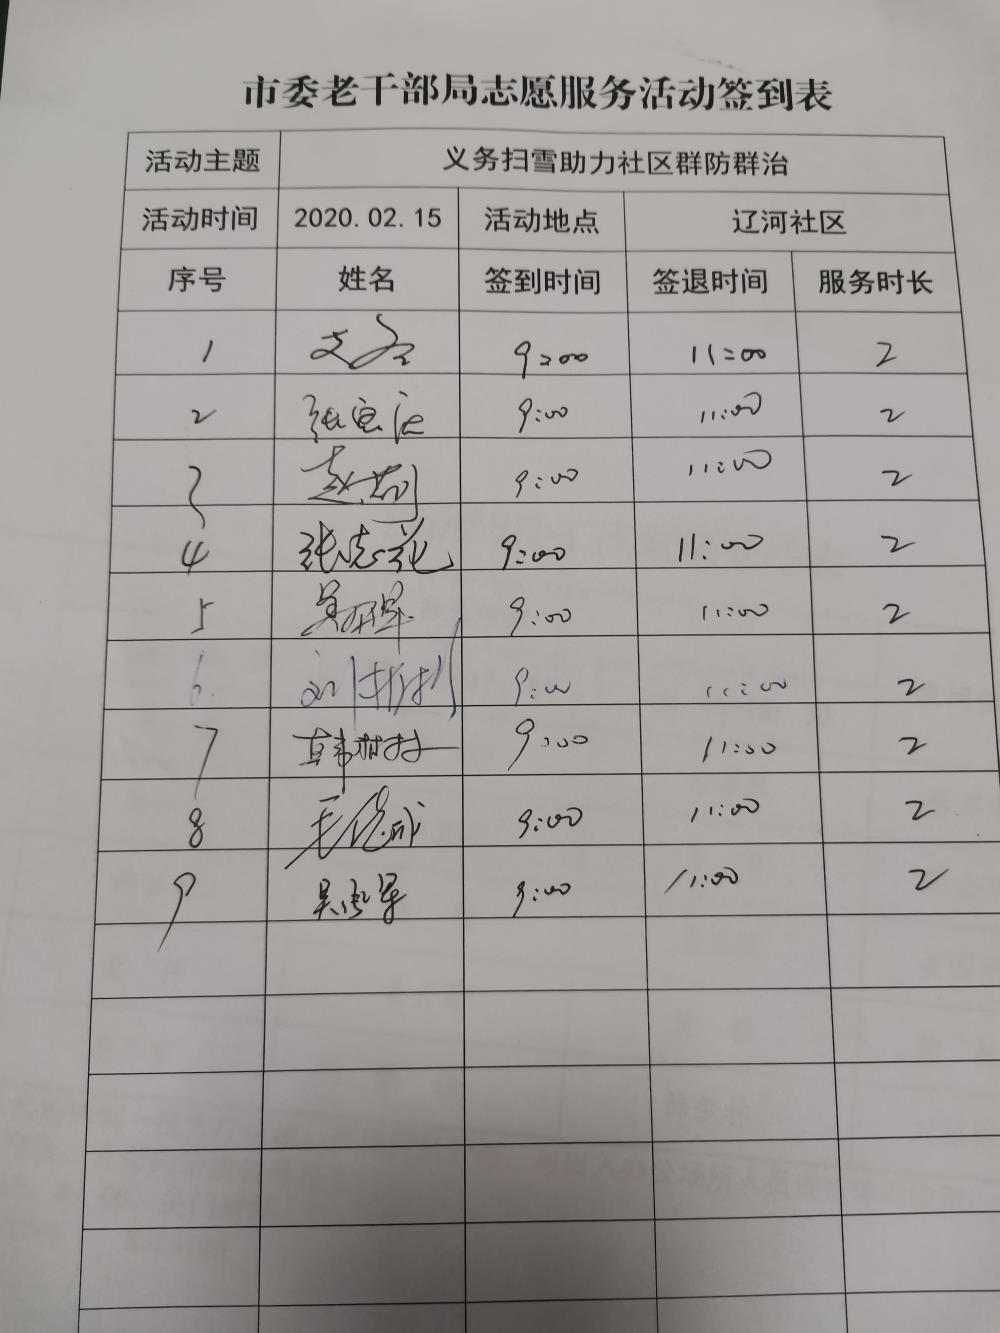 市委老干部局志愿服务活动签到表
活动主题 义务扫雪助力社区群防群治
活动时间 2020.02.15 活动地点 辽河社区
序号 姓名 签到时间 签退时间 服务时长
1 9:00 11:00 2
2 9:00 11:00 2
3 赵 9:00 11:00 2
4 张 9:00 11:00 2
5 吴 9:00 11:00 2
6. 刘彬彬 9:00 11:00 2
7 韩树林 9:00 11:00 2
8 毛 9:00 11:00 2
9 吴 9:00 11:00 2